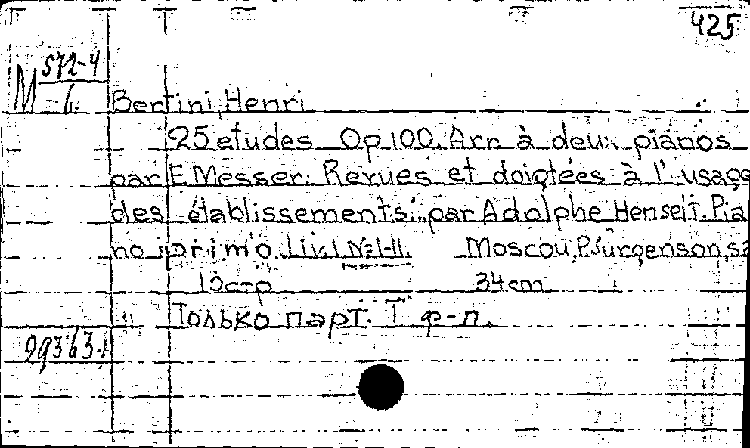 425
М 572-4
-6.
Bertini, Henri
25 etudes Op 100. Arr. à deux pianos
par E Messer. Revues et doigtées à l'usage
des établissements par Adolphe Henselt. Pia
no primo. Liv. I №1-11. Moscou, P. Jurgenson, s.a
13 стр 34 cm
Только парт. I ф-п.
99363-1